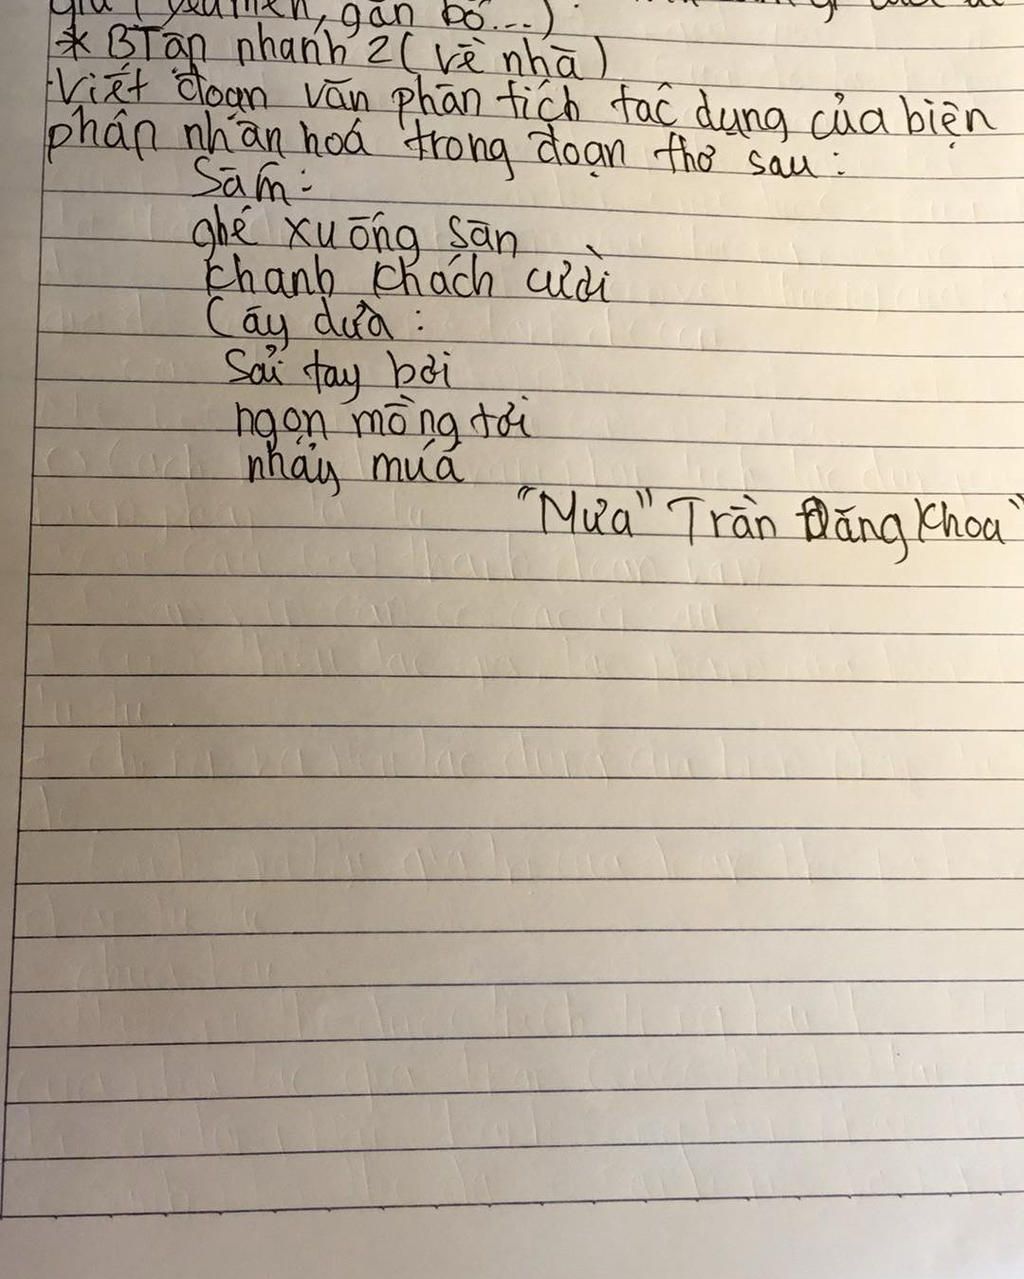 giả (yêu mến, gắn bó...)
* BTập nhanh 2 (về nhà)
Viết đoạn văn phân tích tác dụng của biện
pháp nhân hoá trong đoạn thơ sau:
Sấm:
ghé xuống sân
khanh khách cười
Cây dừa:
Sải tay bơi
ngọn mồng tơi
nhảy múa
"Mưa" Trần Đăng Khoa"